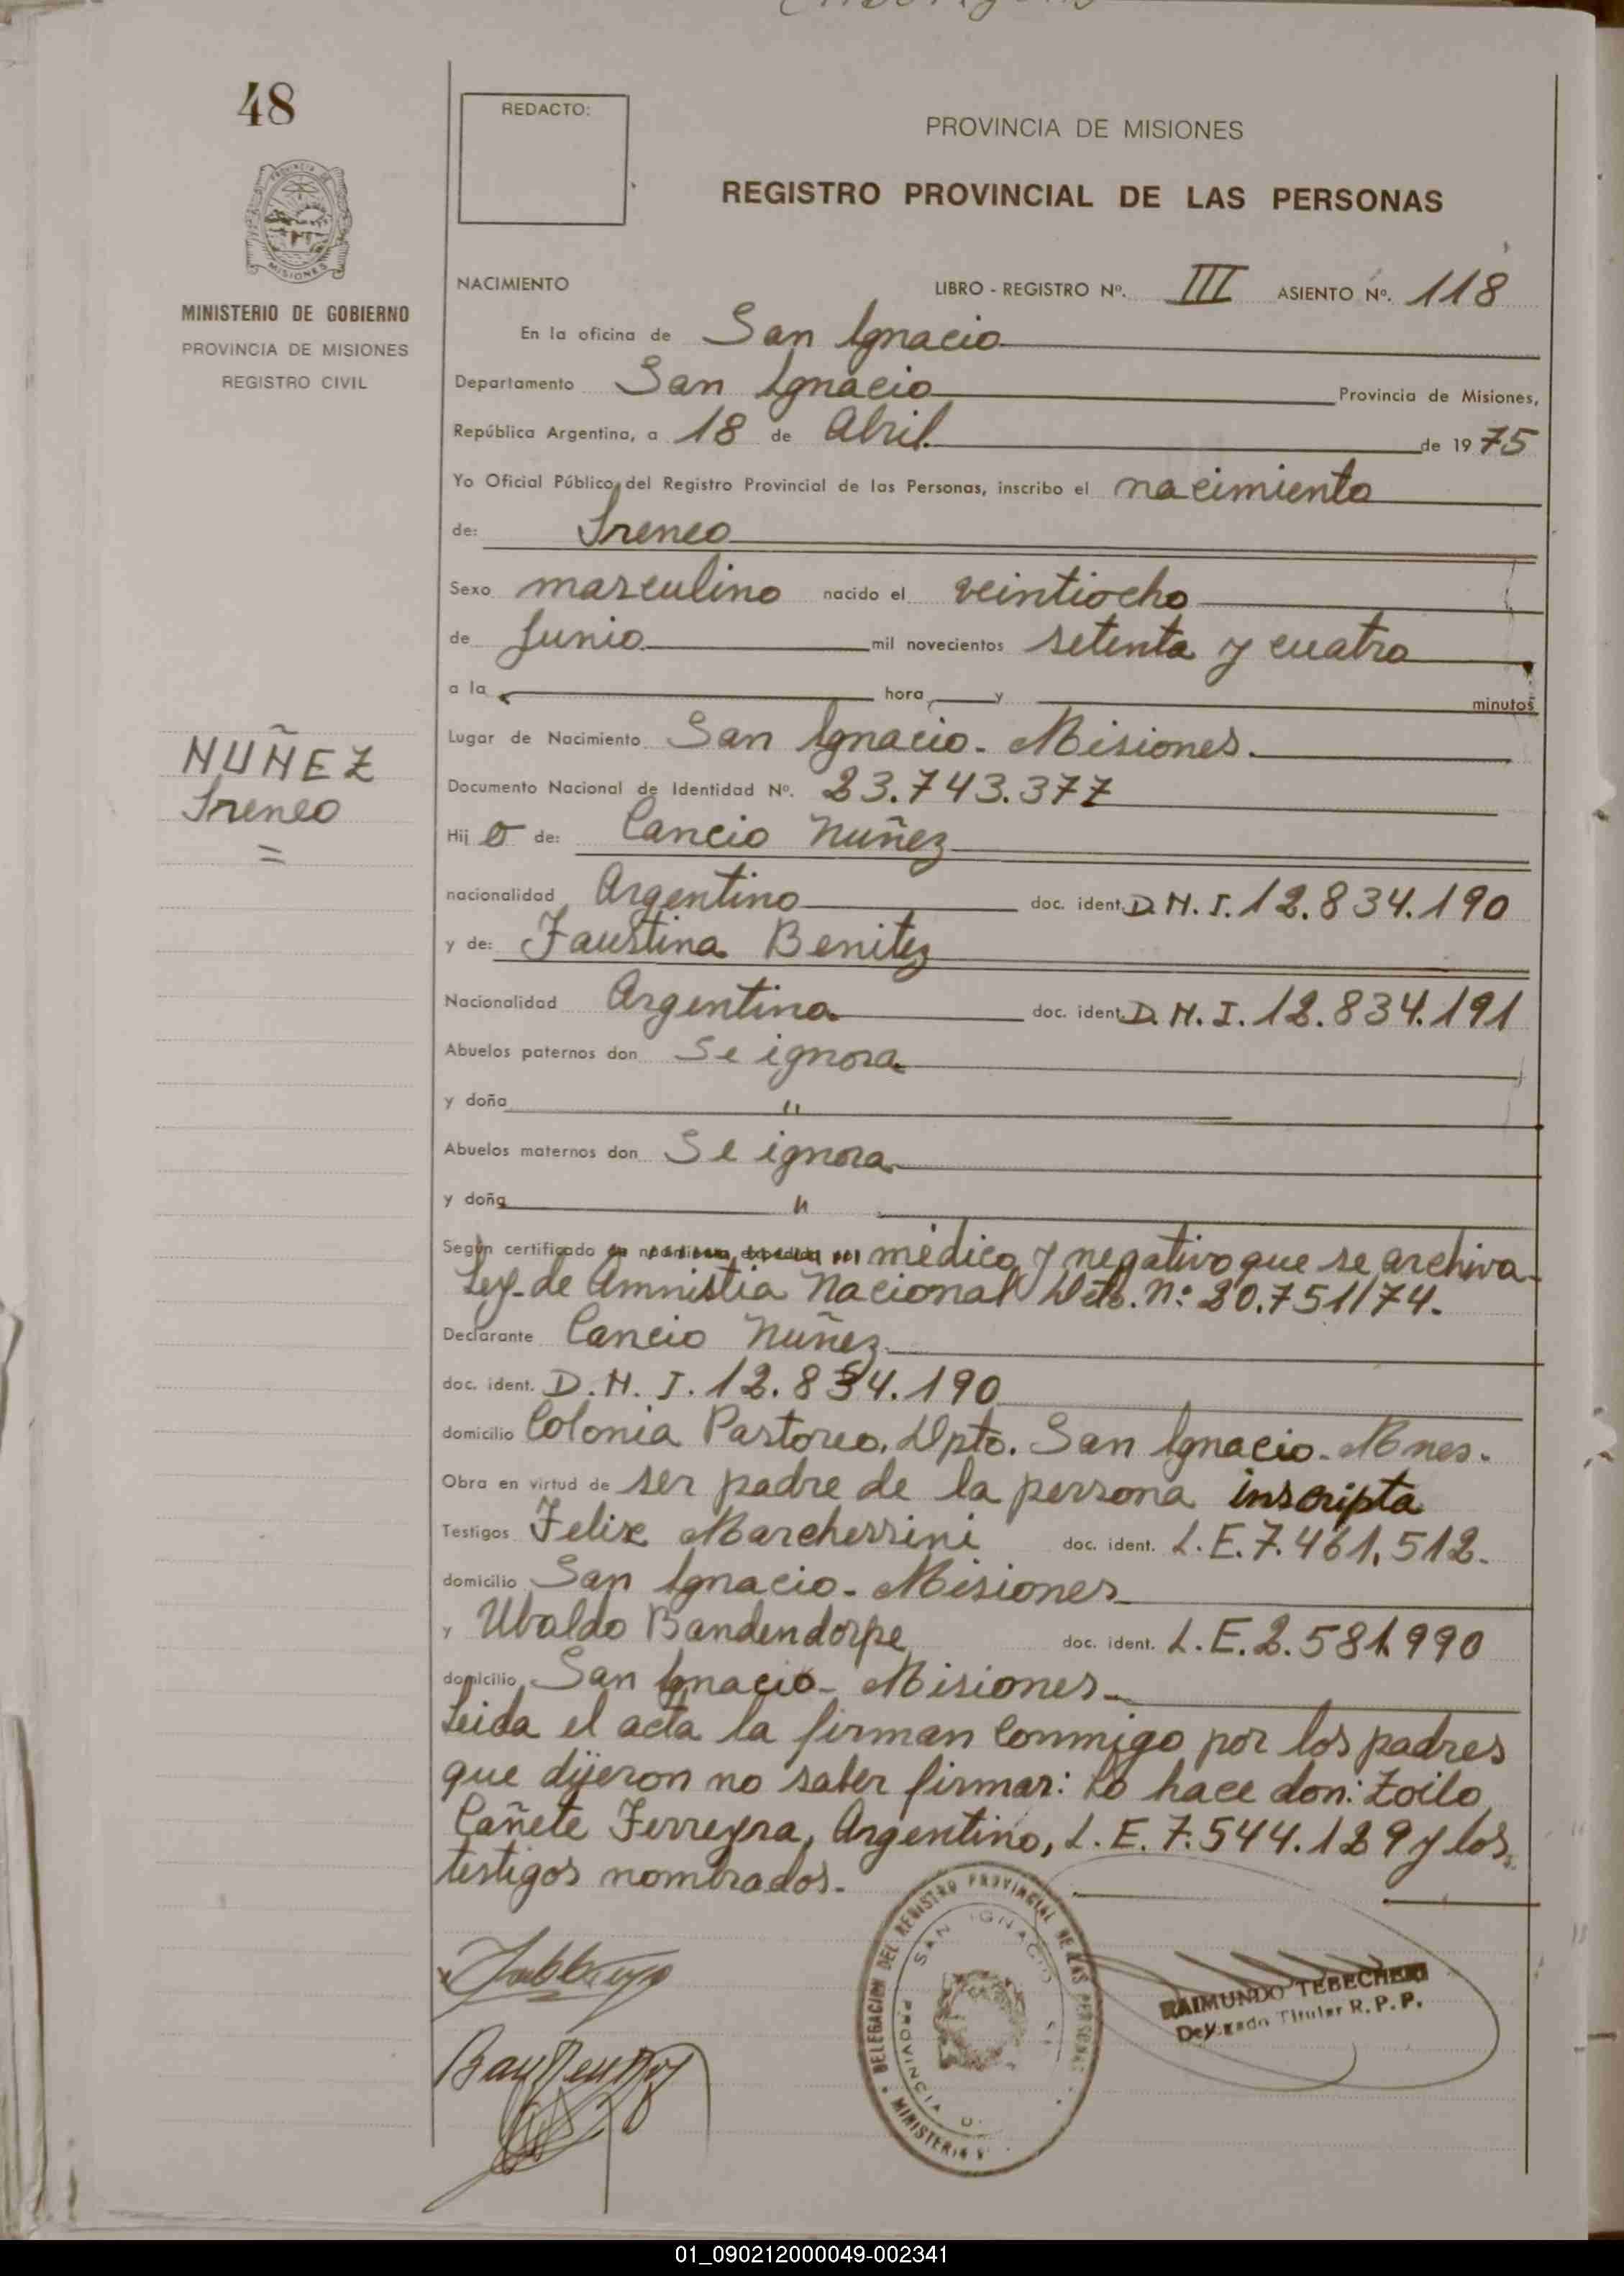 48
REDACTO:
PROVINCIA DE MISIONES
REGISTRO PROVINCIAL DE LAS PERSONAS
MISIONES
MINISTERIO DE GOBIERNO
PROVINCIA DE MISIONES
REGISTRO CIVIL
NACIMIENTO LIBRO - REGISTRO Nº. III ASIENTO Nº. 118
En la oficina de San Ignacio
Departamento San Ignacio Provincia de Misiones,
República Argentina, a 18 de Abril de 1975
Yo Oficial Público, del Registro Provincial de las Personas, inscribo el nacimiento
de: Ireneo
Sexo masculino nacido el veintiocho
de Junio mil novecientos setenta y cuatro
a la hora y minutos
Lugar de Nacimiento San Ignacio - Misiones.
NUÑEZ
Ireneo
=
Documento Nacional de Identidad Nº. 23.743.377
Hijo de: Cancio Nuñez
nacionalidad Argentino doc. ident. D.N.I. 12.834.190
y de: Faustina Benitez
Nacionalidad Argentina doc. ident. D.N.I. 12.834.191
Abuelos paternos don Se ignora
y doña "
Abuelos maternos don Se ignora
y doña "
Según certificado médico y negativo que se archiva-
Ley de Amnistia Nacional Dcto. Nº: 20.751/74.
Declarante Cancio Nuñez
doc. ident. D.N.I. 12.834.190
domicilio Colonia Pastoreo. Dpto. San Ignacio - Mnes.
Obra en virtud de ser padre de la persona inscripta
Testigos Felix Marchessini doc. ident. L.E. 7.461.512.
domicilio San Ignacio - Misiones
y Ubaldo Bandendorpe doc. ident. L.E. 2.581.990
domicilio San Ignacio - Misiones
Leida el acta la firman conmigo por los padres
que dijeron no saber firmar: Lo hace don: Zoilo
Cañete Ferreyra, Argentino, L.E. 7.544.129 y los
testigos nombrados.
DELEGACION DEL REGISTRO PROVINCIAL DE LAS PERSONAS
SAN IGNACIO
PROVINCIA
RAIMUNDO TEBECHERI
Delegado Titular R. P. P.
01_090212000049-002341